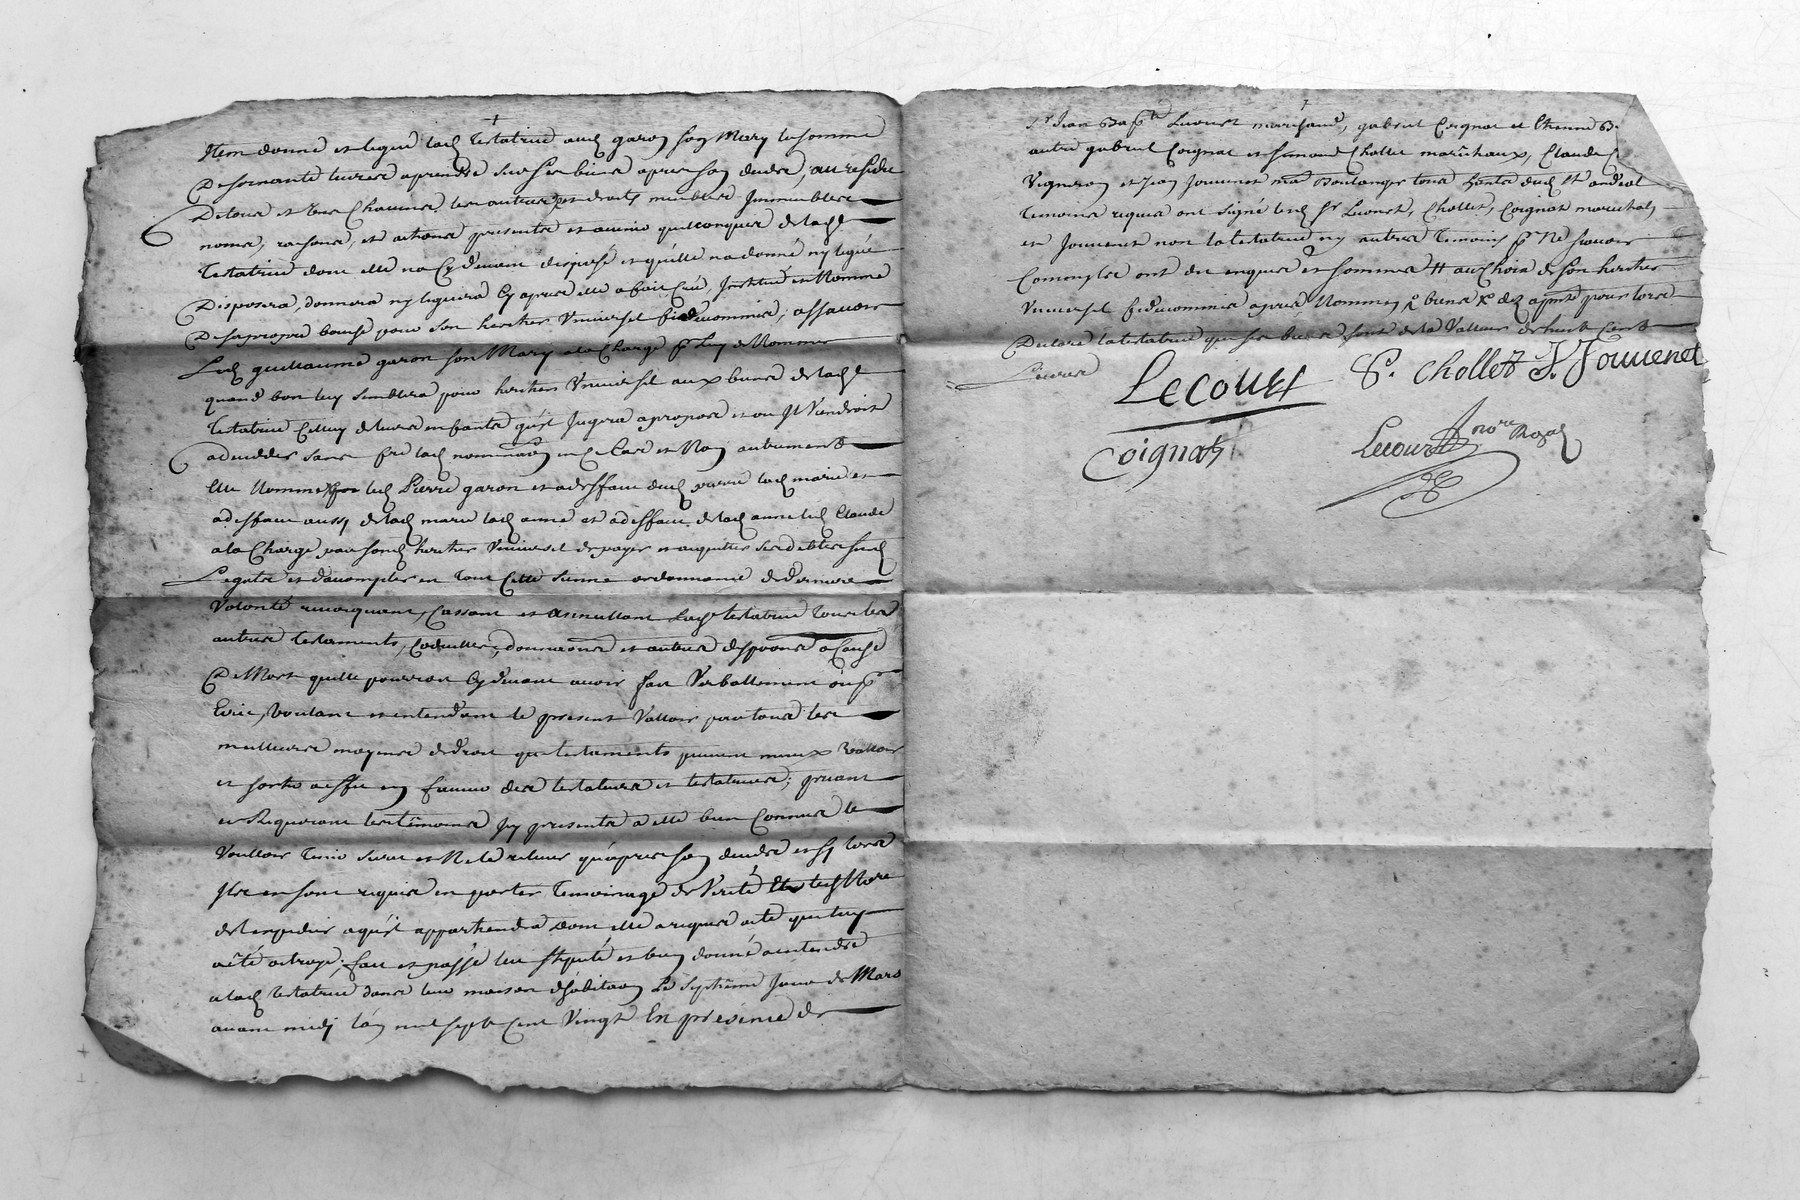 Item donne et legue lad Testatrice aud garon son Mary la somme
De soixante livres a prendre sur ses biens apres son deceds, au residu
De tous et Ses Chacuns les autres et droits meubles Immeubles
noms, raisons, et actions presents et avenir quelconques de lad
Testatrice dont elle na Cy devant disposé et qu'elle na donné ny legué
Disposera, donnera ny leguera Cy apres elle a fait Créé, Institué et Nommé
De sa propre bouche pour son heritier Universel fideicommis, assavoir
Led guillaume garon son Mary a la Charge par Luy de Nommer
quand bon luy semblera pour heritier Universel aux biens de lad
Testatrice Celluy de leurs enfants qu'il Jugera a propos et ou Il Viendroit
a deceder sans fre lad nommaon en Ce Cas et Non autrement
Elle Nomme led Pierre garon et a deffaut dud pierre lad marie et
a deffaut aussy de lad marie lad anne et a deffaut de lad anne led Claude
a la Charge par sond heritier Universel de payer et acquitter ses debtes fred
Legats et d'acomplir en Tout Cette Sienne ordonnance de derniere
Volonté revoquant, Cassant et Annullant Lad testatrice Tous les
autres Testaments, Codicilles, donnaons et autres dispoons a Cause
De Mort quelle pourroit Cy devant avoir fait Verballement ou par
Ecrit, Voulant et entendant le present Valloir par tous les
meilleurs moyens de droit que testaments peuvent mieux Valloir
et sortir a effet en faveur des testateurs et testatrices; priant
et Requerant les témoins Icy presents a elle bien Connus le
Voulloir Tenir Secret et Ne le reveler qu'apres son deceds et sy lors
Ils en sont requis en porter Temoinage de Verité led Nore
de l'expedier a qu'il appartiendra dont elle a requis acte que luy
a été octroyé; fait et passé leu stipulé et bien donné a entendre
a lad testatrice dans leur maison d'habitaon Le Septième Jour de Mars
avant midy l'an mil sept Cent Vingt En présence de
Sr Jean Bapte Lecourt marchand, gabriel Coignat et Etienne B.
autre gabriel Coignat et simond Chollet maréchaux, Claude C
Vigneron et Jean Jouvenet mre Boulanger tous habts dud St andeol
Temoins requis ont signé led Sr Lecourt, Chollet, Coignat marechal
et Jouvenet non la testatrice ny autres Temoins pr Ne sçavoir
Comm'ils ont dit enquis et sommés # au Choix de son heritier
Universel fideicommis apres Nommé
Declaré la testatrice que ses biens sont de la Valleur de huit Cents
Livres
Lecourt S. Chollet J. Jouvenet
Coignat Lecourt nore Royal